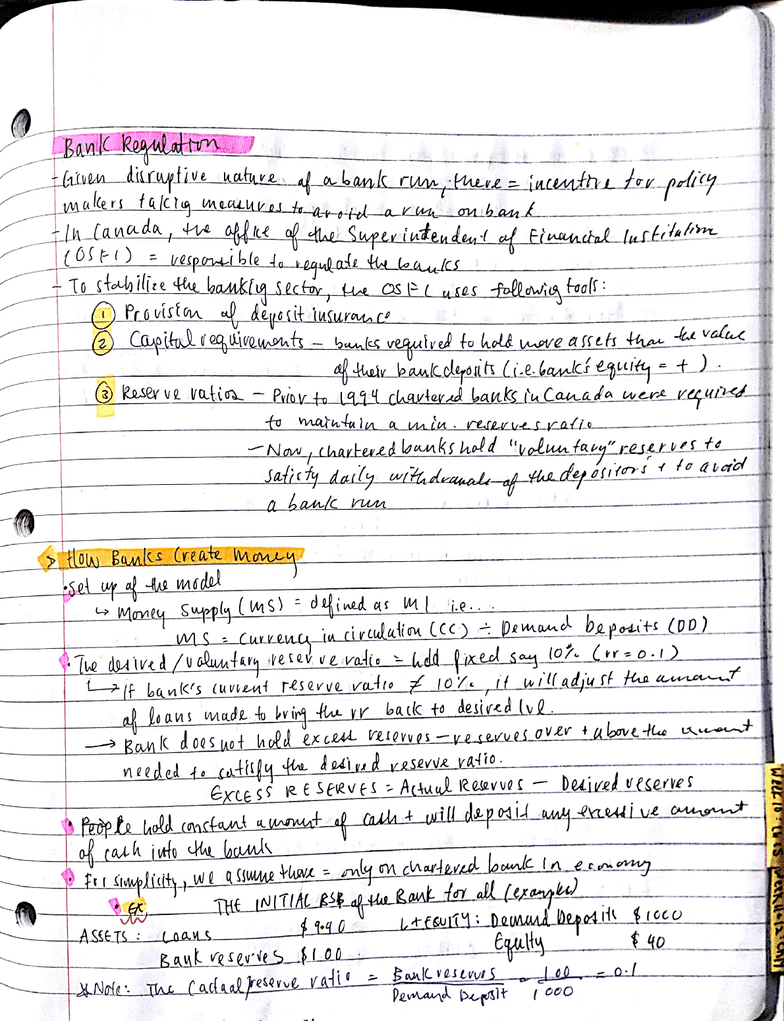 Bank Regulation
- Given disruptive nature of a bank run, there = incentive for policy
makers takig measures to avoid a run on bank
- In Canada, the office of the Superintendent of Financial Institution
(OSFI) = responsible to regulate the banks
- To stabilize the bankig sector, the OSFI uses following tools:
① Provision of deposit insurance
② Capital requirements - banks required to hold more assets than the value
of their bank deposits (i.e. bank's equity = +).
③ Reserve ratios - Prior to 1994 chartered banks in Canada were required
to maintain a min. reserves ratio
- Now, chartered banks hold "voluntary" reserves to
satisfy daily withdrawals of the depositors + to avoid
a bank run
> How Banks Create Money
• Set up of the model
↳ Money Supply (MS) = defined as M1 i.e...
MS = Currency in circulation (CC) ÷ Demand Deposits (DD)
• The desired/voluntary reserve ratio = held fixed say 10% (rr = 0.1)
↳ If bank's current reserve ratio ≠ 10%, it will adjust the amount
of loans made to bring the rr back to desired lvl.
→ Bank does not hold excess reserves - reserves over + above the amount
needed to satisfy the desired reserve ratio.
EXCESS RESERVES = Actual Reserves - Desired reserves
• People hold constant amount of cash + will deposit any excessive amount
of cash into the bank
• For simplicity, we assume there = only on chartered bank in economy
• EX THE INITIAL BSB of the Bank for all (examples)
ASSETS: Loans $940 L + EQUITY: Demand Deposits $1000
Bank reserves $100 Equity $40
*Note: The (actual) reserve ratio = Bank reserves / Demand Deposit = 100 / 1000 = 0.1